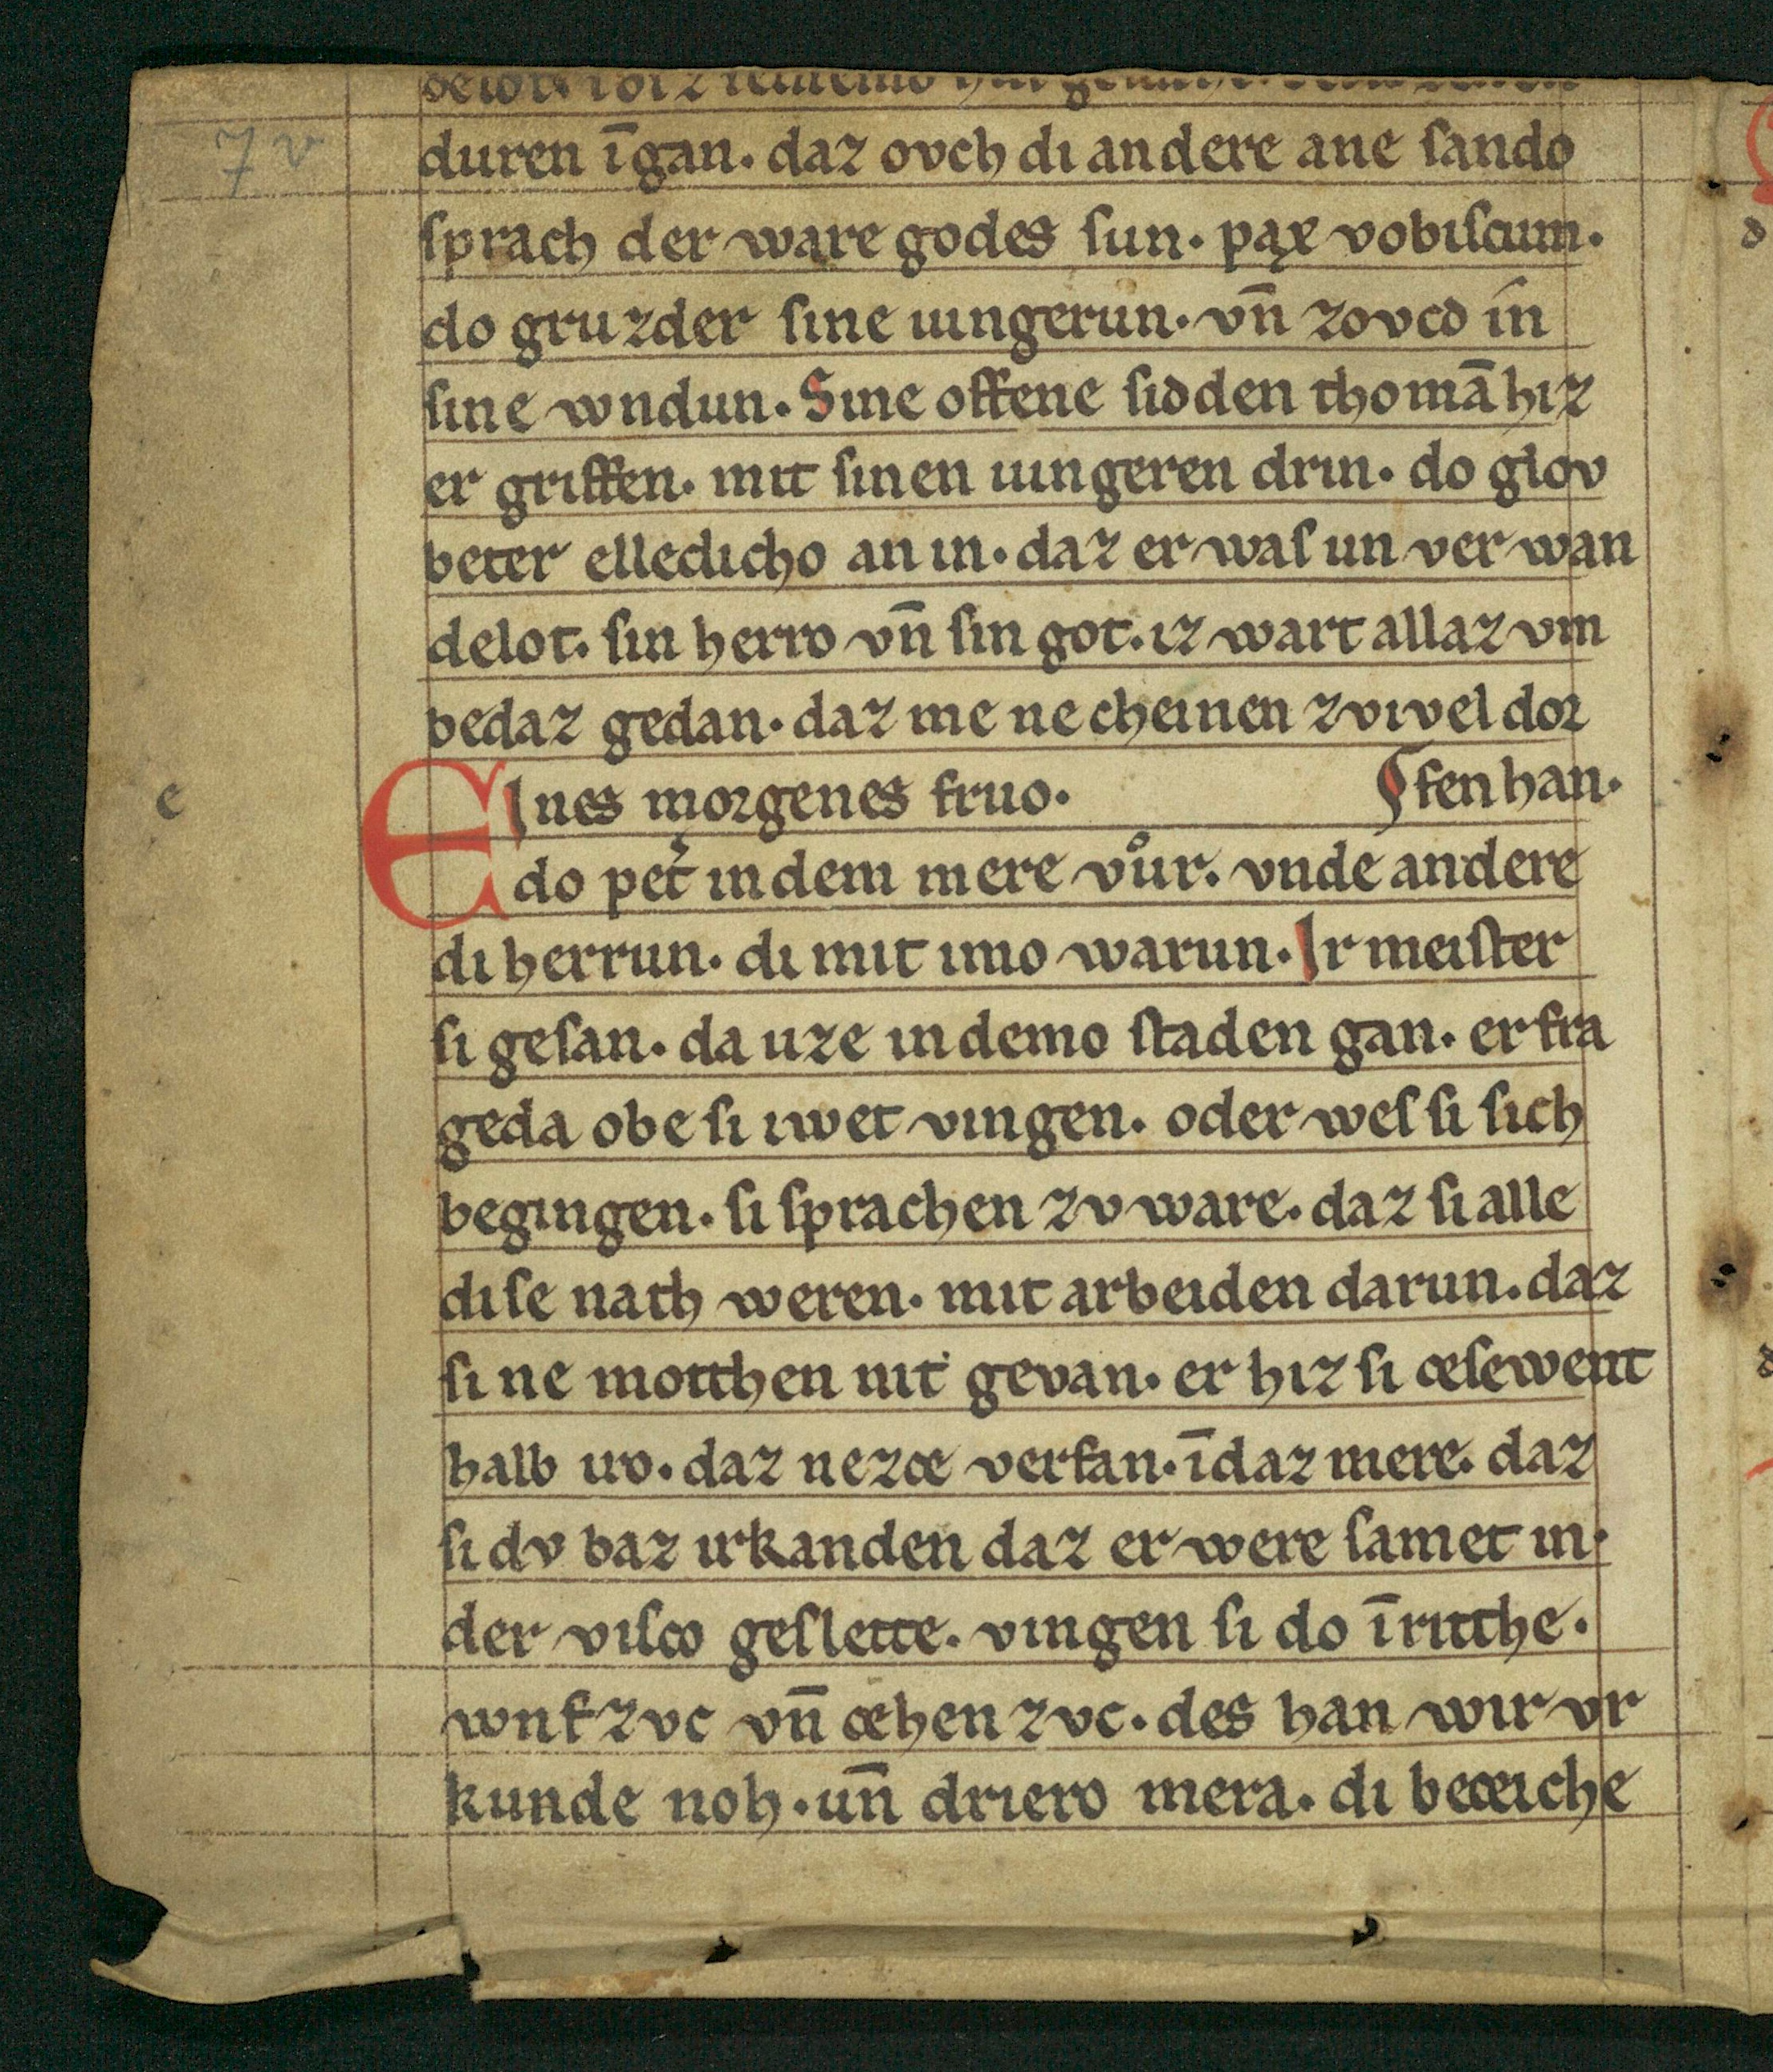 7 v
duren īgan. daz ovch di andere ane ſando
ſprach der ware godes ſun. pax vobiſcum.
do gruzder ſine iungerun. vn̄ zovcd in
ſine wndun. Sine offene ſidden thomā hiz
er griffen. mit ſinen iungeren drin. do glov
beter elledicho an in. daz er waſ un ver wan
delot. ſin herro vn̄ ſin got. iz wart allaz vm
bedaz gedan. daz me ne cheinen zvivel dor
EInes morgenes fruo.
ſten han.
e
do pet̓ in dem mere vůr. vnde andere
di herrun. di mit imo warun. Ir meiſter
ſi geſan. da uze in demo ſtaden gan. er fra
geda obe ſi iwet vingen. oder weſ ſi ſich
begingen. ſi ſprachen zv ware. daz ſi alle
diſe nath weren. mit arbeiden darun. daz
ſi ne motthen nit gevan. er hiz ſi ceſewent
halb iro. daz nezce verfan. īdaz mere. daz
ſi dv baz irkanden daz er were ſamet in.
der viſco geſlette. vingen ſi do īritthe.
wnfzvc vn̄ cehen zvc. des han wir vr
kunde noh. un̄ driero mera. di beceiche